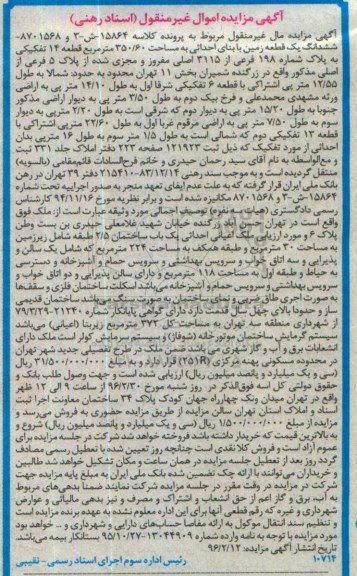 آگهی مزایده اموال غیرمنقول (اسناد رهنی)
آگهی مزایده مال غیرمنقول مربوط به پرونده کلاسه ۱۵۸۶۴-ش-۳ و ۸۷۰۱۵۶۸-
ششدانگ یک قطعه زمین با بنای احداثی به مساحت ۳۵۰/۶۰ مترمربع قطعه ۱۴ تفکیکی
به پلاک شماره ۱۹۸ فرعی از ۳۱۱۵ اصلی مفروز و مجزی شده از پلاک ۵ فرعی از
اصلی مذکور واقع در زرگنده شمیران بخش ۱۱ تهران محدود به حدود: شمالا به طول
۱۲/۵۵ متر پی اشتراکی با قطعه ۶ تفکیکی شرقا اول به طول ۱۴/۱۰ متر پی به اراضی
ورثه مشهدی محمدعلی و فرخ بیک دوم به طول ۳/۵۰ متر پی به دیوار اراضی مذکور
جنوبا به طول ۱۵/۲۰ متر پی به دیوار دوم که شرقی است به طول ۲/۲۰ متر پی به دیوار
سوم به طول ۷/۵۰ متر پی به اراضی مرقوم غربا اول به طول ۲۲/۶۰ مترپی اشتراکی با
قطعه ۱۳ تفکیکی دوم که شمالی است به طول ۱/۵ متر سوم به طول ۱۶ متر پی بنای
احداثی از مورد تفکیک که ذیل ثبت ۱۲۱۹۲۳ صفحه ۲۲۳ دفتر املاک جلد ۳۳۱ ثبت
و مع‌الواسطه به نام آقای سید رحمان حیدری و خانم فرح‌السادات قائم‌مقامی (بالسویه)
منتقل گردیده است و به موجب سند رهنی ۸۳/۱۲/۱۴-۲۱۵۴۱۰ دفتر ۳۹ تهران در رهن
بانک ملی ایران قرار گرفته که به علت عدم ایفای تعهد منجر به صدور اجراییه تحت شماره
۱۵۸۶۴-ش-۳ و ۸۷۰۱۵۶۸ مکانیزه شده است و برابر نظریه مورخ ۹۴/۱۱/۱۶ کارشناس
رسمی دادگستری (هیات سه نفره) توصیف اجمالی مورد وثیقه عبارت است از: ملک فوق
واقع است در تهران حسن آباد زرگنده خیابان شهید غلامعلی حیدری بن بست وطن
پلاک ۶ و مورد ارزیابی ملک اعیانی احداثی یک باب ساختمان ۲/۵ طبقه شامل زیرزمین
به مساحت ۳۰ مترمربع و طبقه همکف به مساحت ۲۲۴ مترمربع که شامل یک سالن و
پذیرایی و سه اتاق خواب و سرویس بهداشتی و سرویس حمام و آشپزخانه و دسترسی
به حیاط و طبقه اول به مساحت ۱۱۸ مترمربع و دارای سالن پذیرایی و دو اتاق خواب و
سرویس بهداشتی و سرویس حمام و آشپزخانه می‌باشد اسکلت ساختمان فلزی و سقف‌ها
به صورت اجری طاق ضربی و نمای ساختمان به صورت سنگ می‌باشد ساختمان قدیمی
ساز و حدودا بالای چهل سال قدمت دارد دارای گواهی پایانکار شماره ۳۱۲۴۰-۷۹/۳/۲۹
از شهرداری منطقه سه تهران به مساحت کل ۳۷۲ مترمربع زیربنا (اعیانی) می‌باشد
سیستم گرمایش ساختمان موتورخانه (شوفاژ) و سیستم سرمایش کولر است ملک دارای
انشعابات برق و آب و گاز شهری می باشد ضمن ملک در طرح تفصیلی جدید شهر تهران
در محدوده مسکونی پهنه مرکزی (۲۵۱R) قرار دارد و به مبلغ ۳۱/۵۰۰/۰۰۰/۰۰۰ ریال
(سی و یک میلیارد و پانصد میلیون ریال) ارزیابی شده است و جهت وصول طلب بانک و
حقوق دولتی کل اسه فوق‌الذکر در روز شنبه مورخ ۹۶/۳/۳۰ از ساعت ۹ الی ۱۲ ظهر
واقع در تهران میدان ونک چهارراه جهان کودک پلاک ۳۴ ساختمان معاونت اجرا ثبت
اسناد و املاک استان تهران سالن مزایده از طریق مزایده حضوری به فروش می‌رسد و
مزایده از مبلغ ۳۱/۵۰۰/۰۰۰/۰۰۰ ریال (سی و یک میلیارد و پانصد میلیون ریال) شروع و
به بالاترین قیمت که خریدار داشته باشد فروخته خواهد شد شرکت در جلسه مزایده برای
عموم آزاد است و فروش کلا نقدی است چنانچه روز تعیین شده با تعطیل رسمی مصادف
گردد روز بعد از تعطیل جلسه مزایده در همان ساعت و مکان تشکیل خواهد شد طالبین
و خریداران می‌توانند با ارائه چک تضمین شده بانک ملی ایران به مبلغ پایه مزایده جهت
شرکت در مزایده در وقت مقرر در جلسه مزایده شرکت نمایند ضمنا بدهی‌های مربوط
به آب، برق و گاز اعم از حق انشعاب و اشتراک و مصرف و نیز بدهی مالیاتی و عوارض
شهرداری و غیره که رقم قطعی آنها برای این اداره معلوم نشده به عهده برنده مزایده است
و تنظیم سند انتقال موکول به ارائه مفاصا حساب‌های دارایی و شهرداری و ... خواهد بود
مورد مزایده با توجه به نامه وارده شماره ۱۳۰۴۴۹۰۹-۹۵/۱۰/۲۷ بستانکار بیمه می‌باشد.
تاریخ انتشار آگهی مزایده: ۹۶/۲/۱۲
۱۰۷۱۴ رئیس اداره سوم اجرای اسناد رسمی - نقیبی